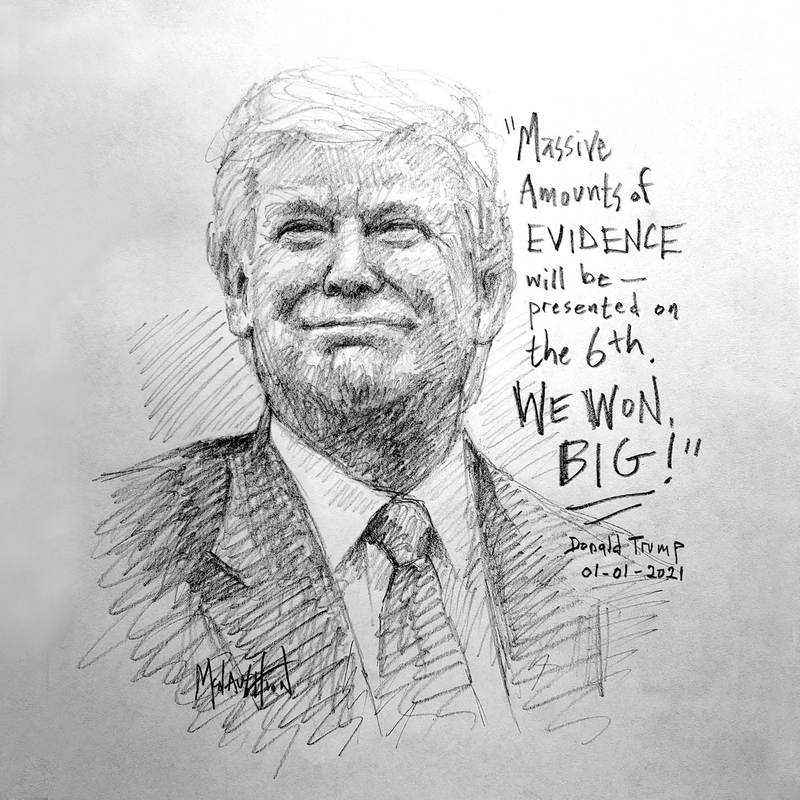 "Massive
Amounts of
EVIDENCE
will be —
presented on
the 6th.
WE WON,
BIG!"
Donald Trump
01-01-2021